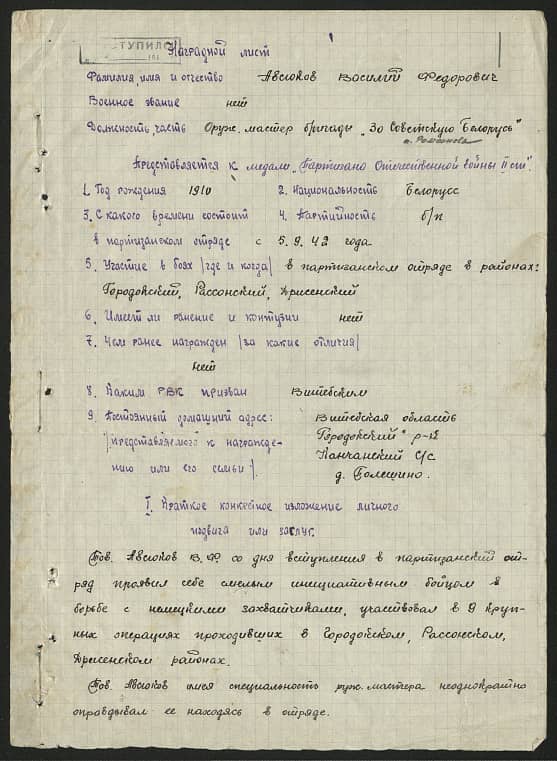 СТУПИЛО
Наградной лист
Фамилия, имя и отчество Авсюков Василий Федорович
Военное звание нет
Должность часть Оруж. мастер бригады "За Советскую Белорусь"
п. Романова
Представляется к медали "Партизана Отечественной войны II ст".
1. Год рождения 1910 2. Национальность Белорусс
3. С какого времени состоит 4. Партийность б/п
в партизанском отряде с 5.9.42 года
5. Участие в боях /где и когда/ в партизанском отряде в районах:
Городокский, Рассонский, Дрисенский
6. Имеет ли ранение и контузии нет
7. Чем ранее награжден /за какие отличия/
нет
8. Каким РВК призван Витебским
9. Постоянный домашний адрес: Витебская область
/представляемого к награжде- Городокский р-н
нию или его семьи/. с/с
д. Болешино.
I. Краткое конкретное изложение личного
подвига или заслуг.
Тов. Авсюков В.Ф. со дня вступления в партизанский от-
ряд проявил себе смелым инициативным бойцом в
борьбе с немецкими захватчиками, участвовал в 9 круп-
ных операциях проходивших в Городокском, Рассонском,
Дрисенском районах.
Тов. Авсюков имея специальность руж. мастера неоднократно
оправдывал ее находясь в отряде.